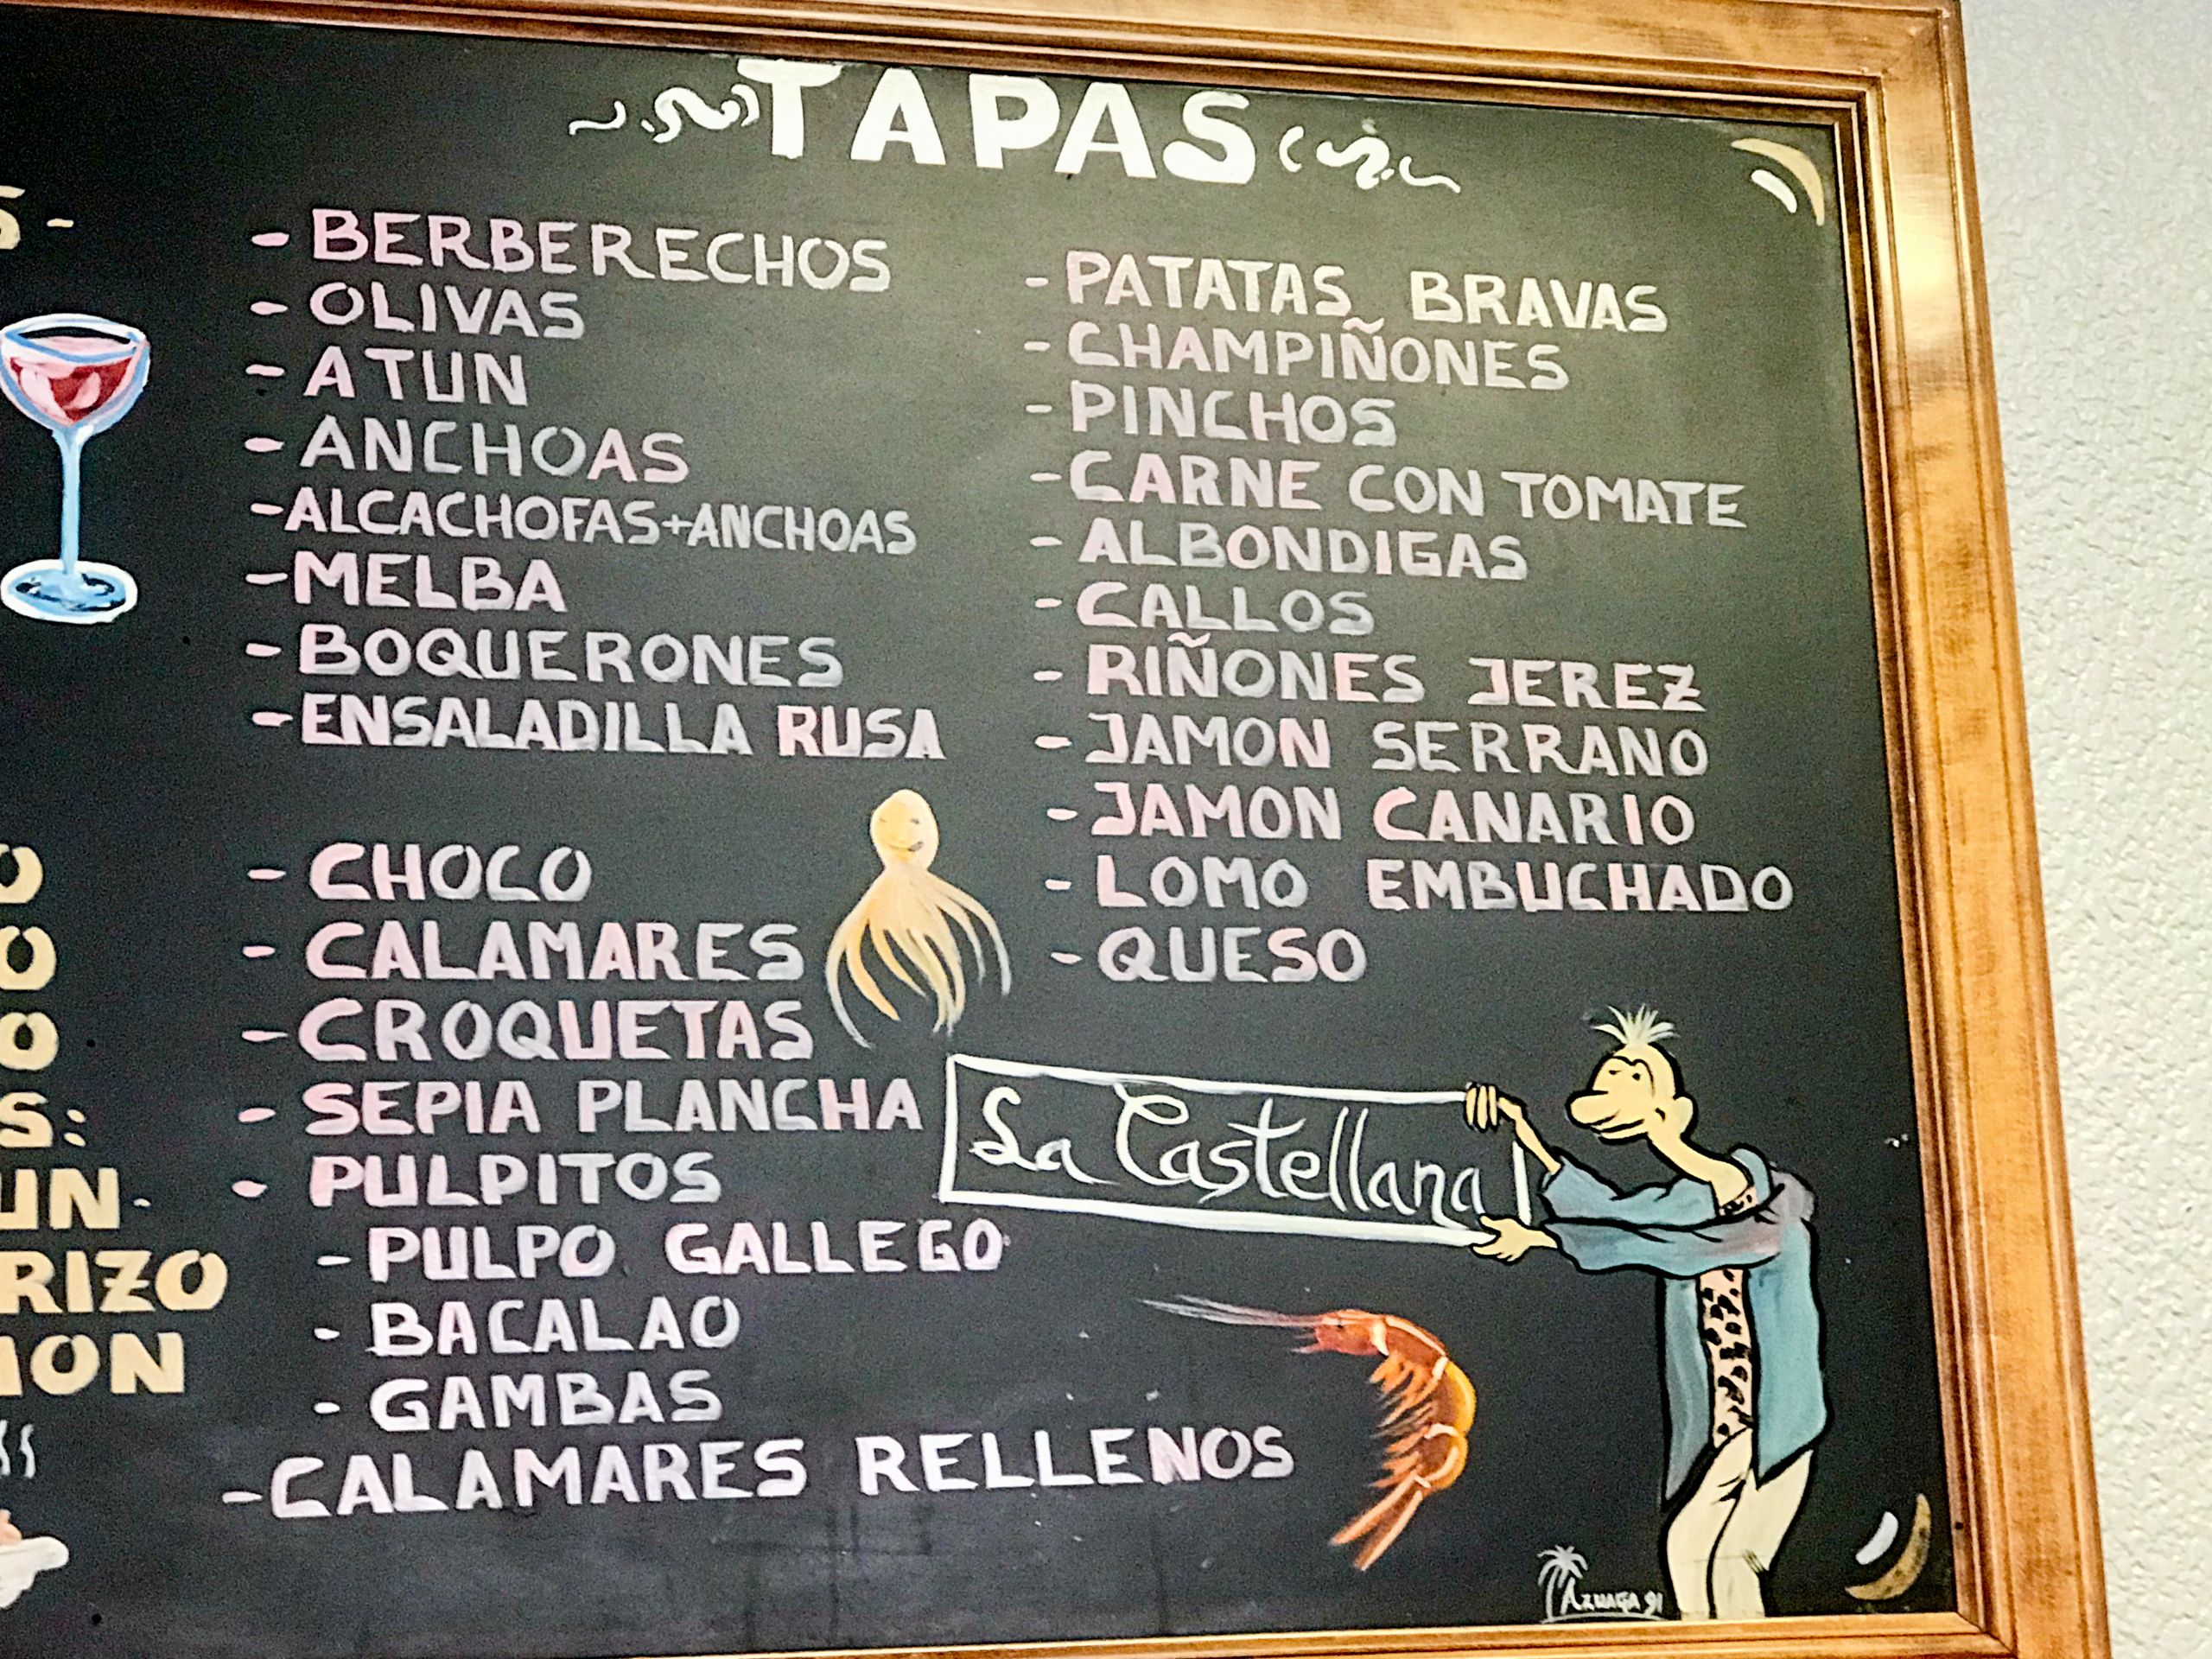 TAPAS
- BERBERECHOS
- OLIVAS
- ATUN
- ANCHOAS
- ALCACHOFAS+ANCHOAS
- MELBA
- BOQUERONES
- ENSALADILLA RUSA
- CHOCO
- CALAMARES
- CROQUETAS
- SEPIA PLANCHA
- PULPITOS
- PULPO GALLEGO
- BACALAO
- GAMBAS
- CALAMARES RELLENOS
- PATATAS BRAVAS
- CHAMPIÑONES
- PINCHOS
- CARNE CON TOMATE
- ALBONDIGAS
- CALLOS
- RIÑONES JEREZ
- JAMON SERRANO
- JAMON CANARIO
- LOMO EMBUCHADO
- QUESO
La Castellana
AZUAGA 91